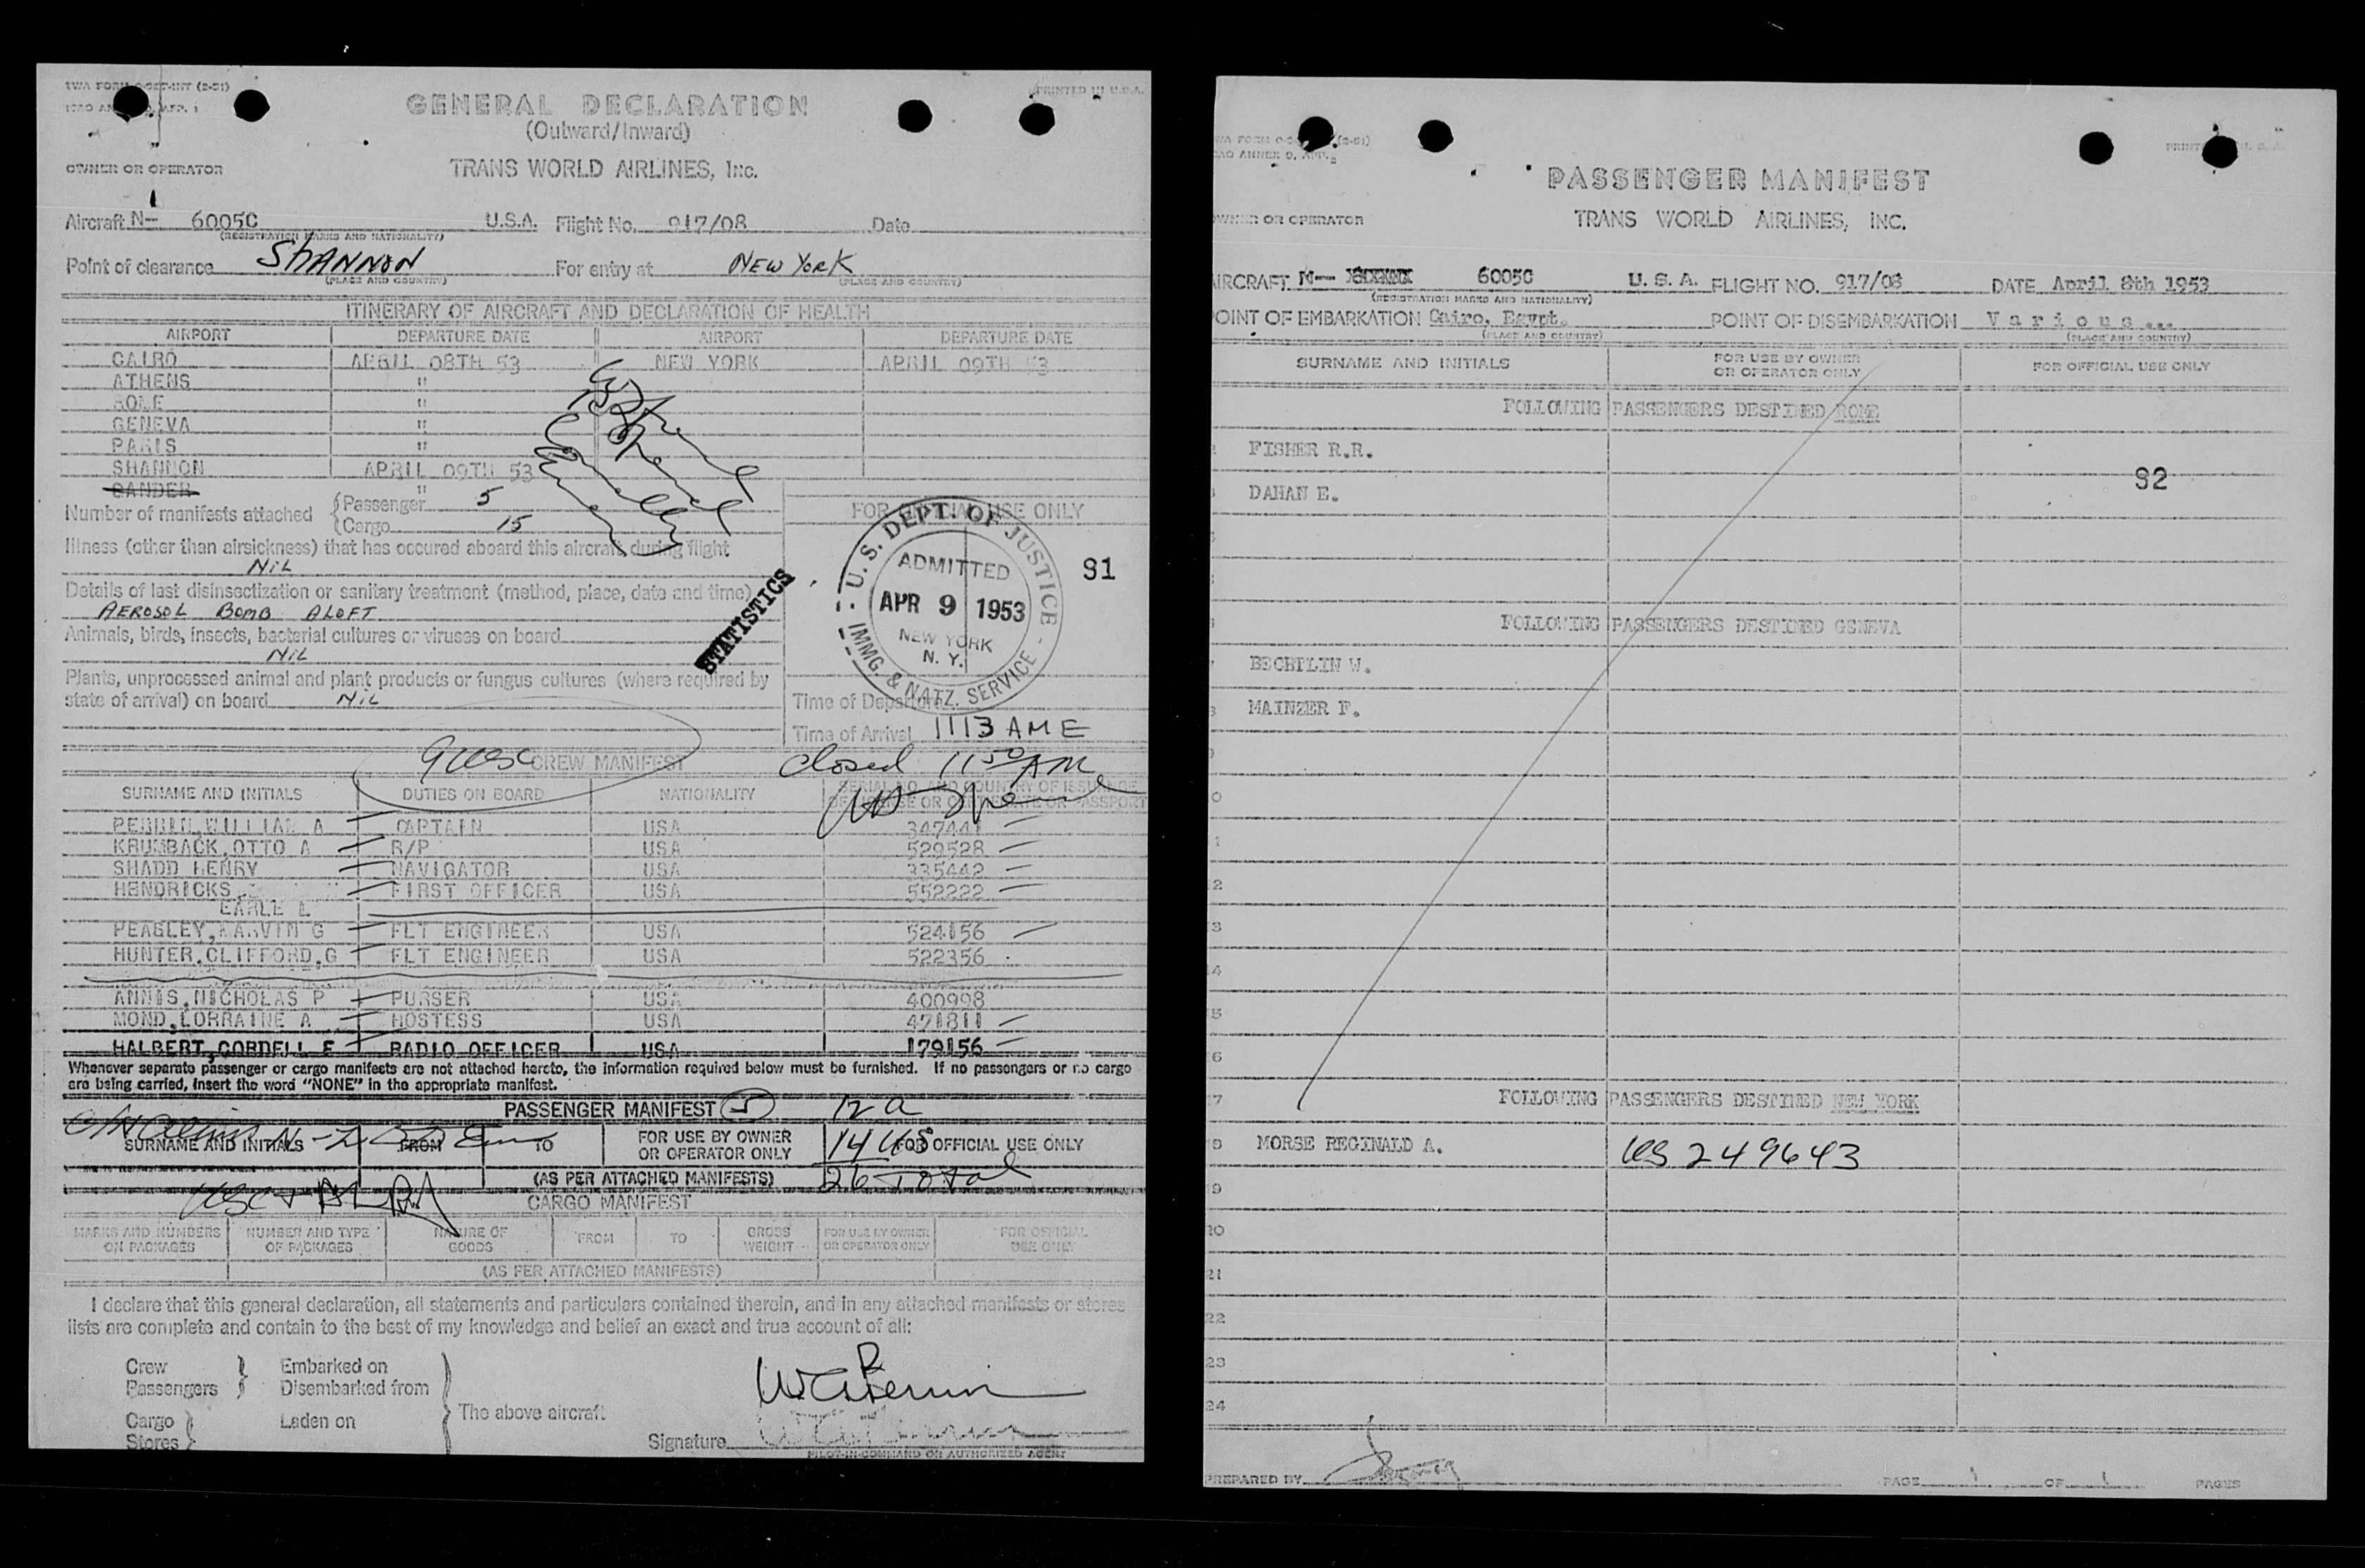 GENERAL DECLARATION
(Outward/Inward)
PRINTED IN U.S.A.
OWNER OR OPERATOR
TRANS WORLD AIRLINES, Inc.
Aircraft N- 6005C U.S.A. Flight No. 917/08 Date
(REGISTRATION MARKS AND NATIONALITY)
Point of clearance SHANNON For entry at NEW YORK
(PLACE AND COUNTRY) (PLACE AND COUNTRY)
ITINERARY OF AIRCRAFT AND DECLARATION OF HEALTH
AIRPORT DEPARTURE DATE AIRPORT DEPARTURE DATE
CAIRO APRIL 08TH 53 NEW YORK APRIL 09TH 53
ATHENS "
ROME "
GENEVA "
PARIS "
SHANNON APRIL 09TH 53
GANDER "
Number of manifests attached { Passenger 5
{ Cargo 15
FOR OFFICIAL USE ONLY
Illness (other than airsickness) that has occured aboard this aircraft during flight
NIL
Details of last disinsectization or sanitary treatment (method, place, date and time)
AEROSOL BOMB ALOFT
Animals, birds, insects, bacterial cultures or viruses on board
NIL
Plants, unprocessed animal and plant products or fungus cultures (where required by
state of arrival) on board NIL
STATISTICS
U. S. DEPT. OF JUSTICE
ADMITTED
APR 9 1953
NEW YORK
N. Y.
IMMG. & NATZ. SERVICE
91
Time of Departure
Time of Arrival 1113 AME
closed 1150 AM
CREW MANIFEST
SURNAME AND INITIALS DUTIES ON BOARD NATIONALITY SERIAL NO. AND COUNTRY OF ISSUANCE
OF LICENSE OR CERTIFICATE OR PASSPORT
PERRIN, WILLIAM A CAPTAIN USA 347441
KRUMBACK, OTTO A R/P USA 529528
SHADD HENRY NAVIGATOR USA 335442
HENDRICKS FIRST OFFICER USA 552222
EARLE L
PEASLEY, MARVIN G FLT ENGINEER USA 524156
HUNTER, CLIFFORD, G FLT ENGINEER USA 522356
ANNIS, NICHOLAS P PURSER USA 400998
MOND, LORRAINE A HOSTESS USA 471811
HALBERT, CORDELL E RADIO OFFICER USA 179156
Whenever separate passenger or cargo manifests are not attached hereto, the information required below must be furnished. If no passengers or no cargo
are being carried, insert the word "NONE" in the appropriate manifest.
PASSENGER MANIFEST 5 12 a
SURNAME AND INITIALS FROM TO FOR USE BY OWNER OR OPERATOR ONLY 14 US FOR OFFICIAL USE ONLY
(AS PER ATTACHED MANIFESTS) 26 Total
CARGO MANIFEST
MARKS AND NUMBERS ON PACKAGES NUMBER AND TYPE OF PACKAGES NATURE OF GOODS FROM TO GROSS WEIGHT FOR USE BY OWNER OR OPERATOR ONLY FOR OFFICIAL USE ONLY
(AS PER ATTACHED MANIFESTS)
I declare that this general declaration, all statements and particulars contained therein, and in any attached manifests or stores
lists are complete and contain to the best of my knowledge and belief an exact and true account of all:
Crew } Embarked on
Passengers } Disembarked from
Cargo } Laden on
Stores }
The above aircraft
WA Perrin
Signature
PILOT-IN-COMMAND OR AUTHORIZED AGENT
PASSENGER MANIFEST
OWNER OR OPERATOR
TRANS WORLD AIRLINES, INC.
AIRCRAFT N- 6005C U. S. A. FLIGHT NO. 917/08 DATE April 8th 1953
(REGISTRATION MARKS AND NATIONALITY)
POINT OF EMBARKATION Cairo, Egypt. POINT OF DISEMBARKATION Various...
(PLACE AND COUNTRY) (PLACE AND COUNTRY)
SURNAME AND INITIALS FOR USE BY OWNER OR OPERATOR ONLY FOR OFFICIAL USE ONLY
FOLLOWING PASSENGERS DESTINED ROME
FISHER R.R.
92
DAHAN E.
FOLLOWING PASSENGERS DESTINED GENEVA
BECHTLIN W.
MAINZER F.
FOLLOWING PASSENGERS DESTINED NEW YORK
MORSE REGINALD A. US 249643
19
20
21
22
23
24
PREPARED BY PAGE 1 OF 1 PAGES